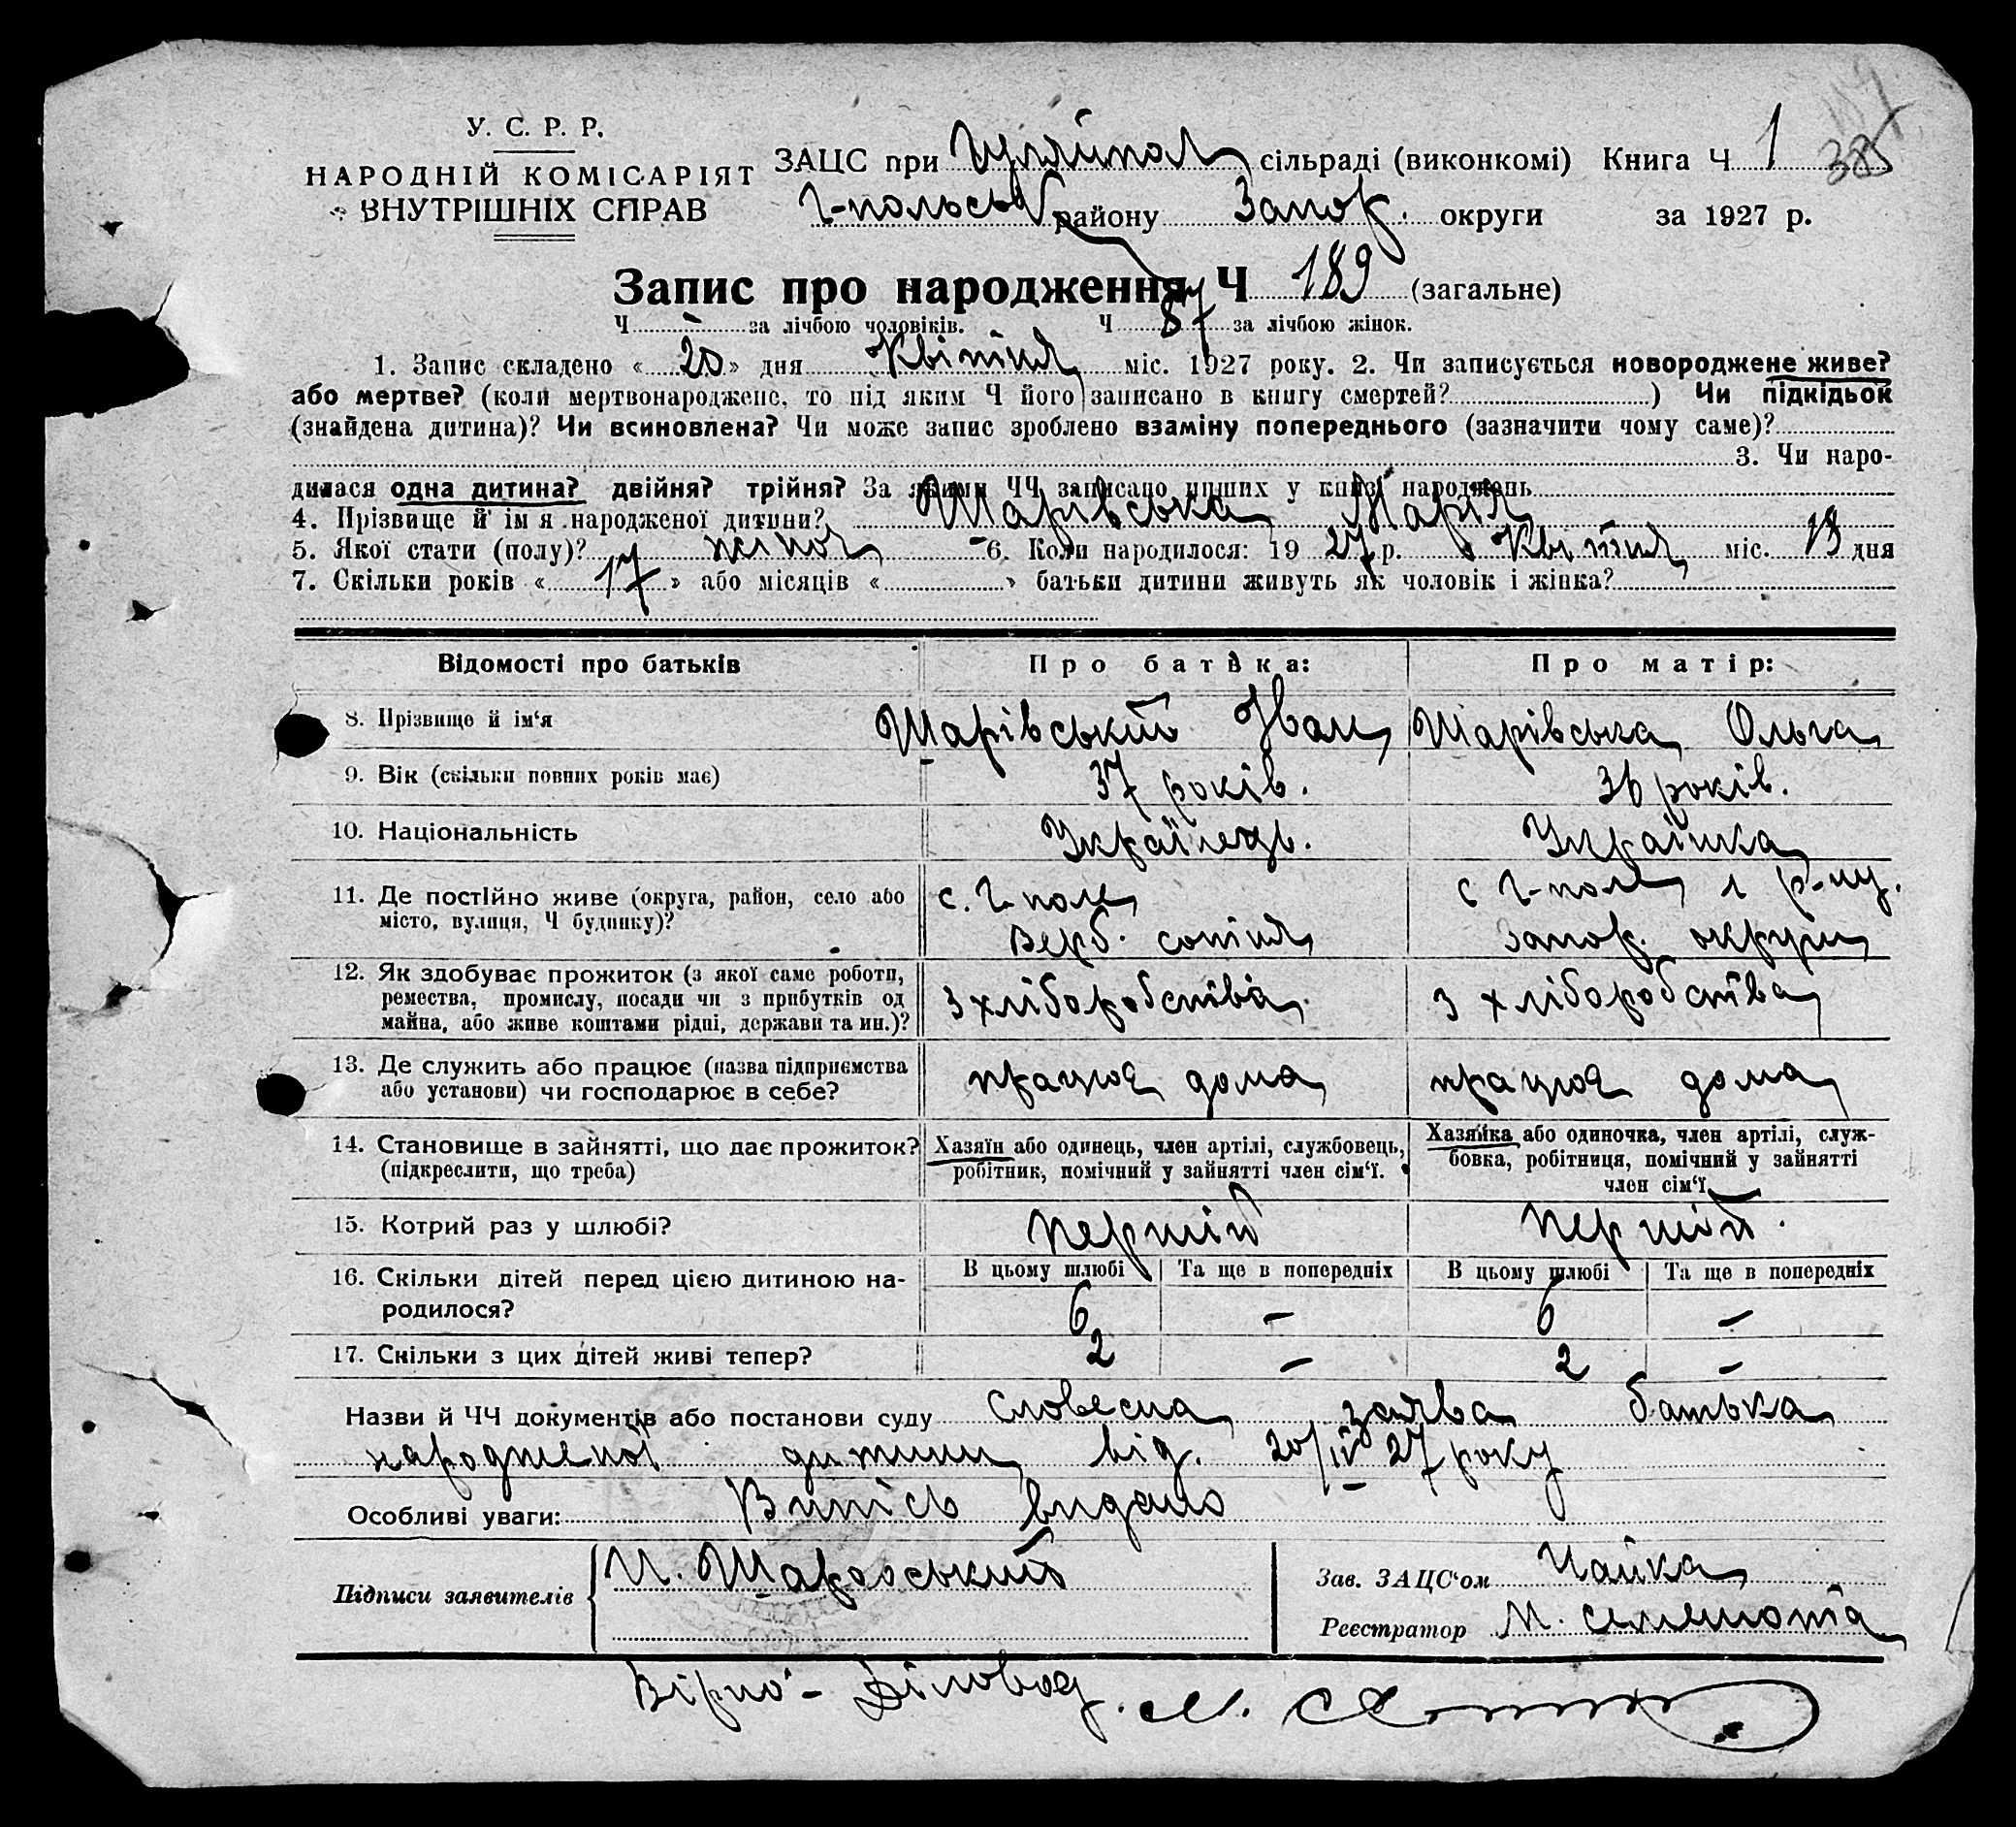 385
У. С. Р. Р.
НАРОДНІЙ КОМІСАРІЯТ
ВНУТРІШНІХ СПРАВ
ЗАЦС при Гуляйпол сільраді (виконкомі) Книга Ч 1
Г-польськ району Запор. округи за 1927 р.
Запис про народження Ч 189 (загальне)
Ч - за лічбою чоловіків. Ч 87 за лічбою жінок.
1. Запис складено « 20 » дня Квітня міс. 1927 року. 2. Чи записується новороджене живе?
або мертве? (коли мертвонароджене, то під яким Ч його записано в книгу смертей? ) Чи підкідьок
(знайдена дитина)? Чи всиновлена? Чи може запис зроблено взаміну попереднього (зазначити чому саме)?
3. Чи наро-
дилася одна дитина? двійня? трійня? За якими ЧЧ записано инших у книзі народжень
4. Прізвище й ім я народженої дитини? Шарівська Марія
5. Якої стати (полу)? жіноч 6. Коли народилося: 19 27 р. Квітня міс. 13 дня
7. Скільки років « 17 » або місяців « » батьки дитини живуть як чоловік і жінка?
Відомості про батьків Про батька: Про матір:
8. Прізвище й ім‘я Шарівський Іван Шарівська Ольга
9. Вік (скільки повних років має) 37 років. 36 років.
10. Національність Українець. Українка
11. Де постійно живе (округа, район, село або с. Г-поле с Г-поле р-ну.
місто, вулиця, Ч будинку)? Верб. сотня Запор. округи
12. Як здобуває прожиток (з якої саме роботи,
ремества, промислу, посади чи з прибутків од з хліборобства з хліборобства
майна, або живе коштами рідні, держави та ин.)?
13. Де служить або працює (назва підприємства працює дома працює дома
або установи) чи господарює в себе?
14. Становище в зайнятті, що дає прожиток? Хазяїн або одинець, член артілі, службовець, Хазяйка або одиночка, член артілі, служ-
(підкреслити, що треба) робітник, помічний у зайнятті член сім‘ї. бовка, робітниця, помічний у зайнятті
член сім‘ї
15. Котрий раз у шлюбі? перший перший.
16. Скільки дітей перед цією дитиною на- В цьому шлюбі Та ще в попередніх В цьому шлюбі Та ще в попередніх
родилося? 6 - 6 -
17. Скільки з цих дітей живі тепер? 2 - 2 -
Назви й ЧЧ документів або постанови суду словесна заява батька
народженої дитини від. 20/IV 27 року
Особливі уваги: Випісь видано
Підписи заявителів И. Шаровський Зав. ЗАЦС‘ом Чайка
Реєстратор М.
Вірно - Діловод. М.